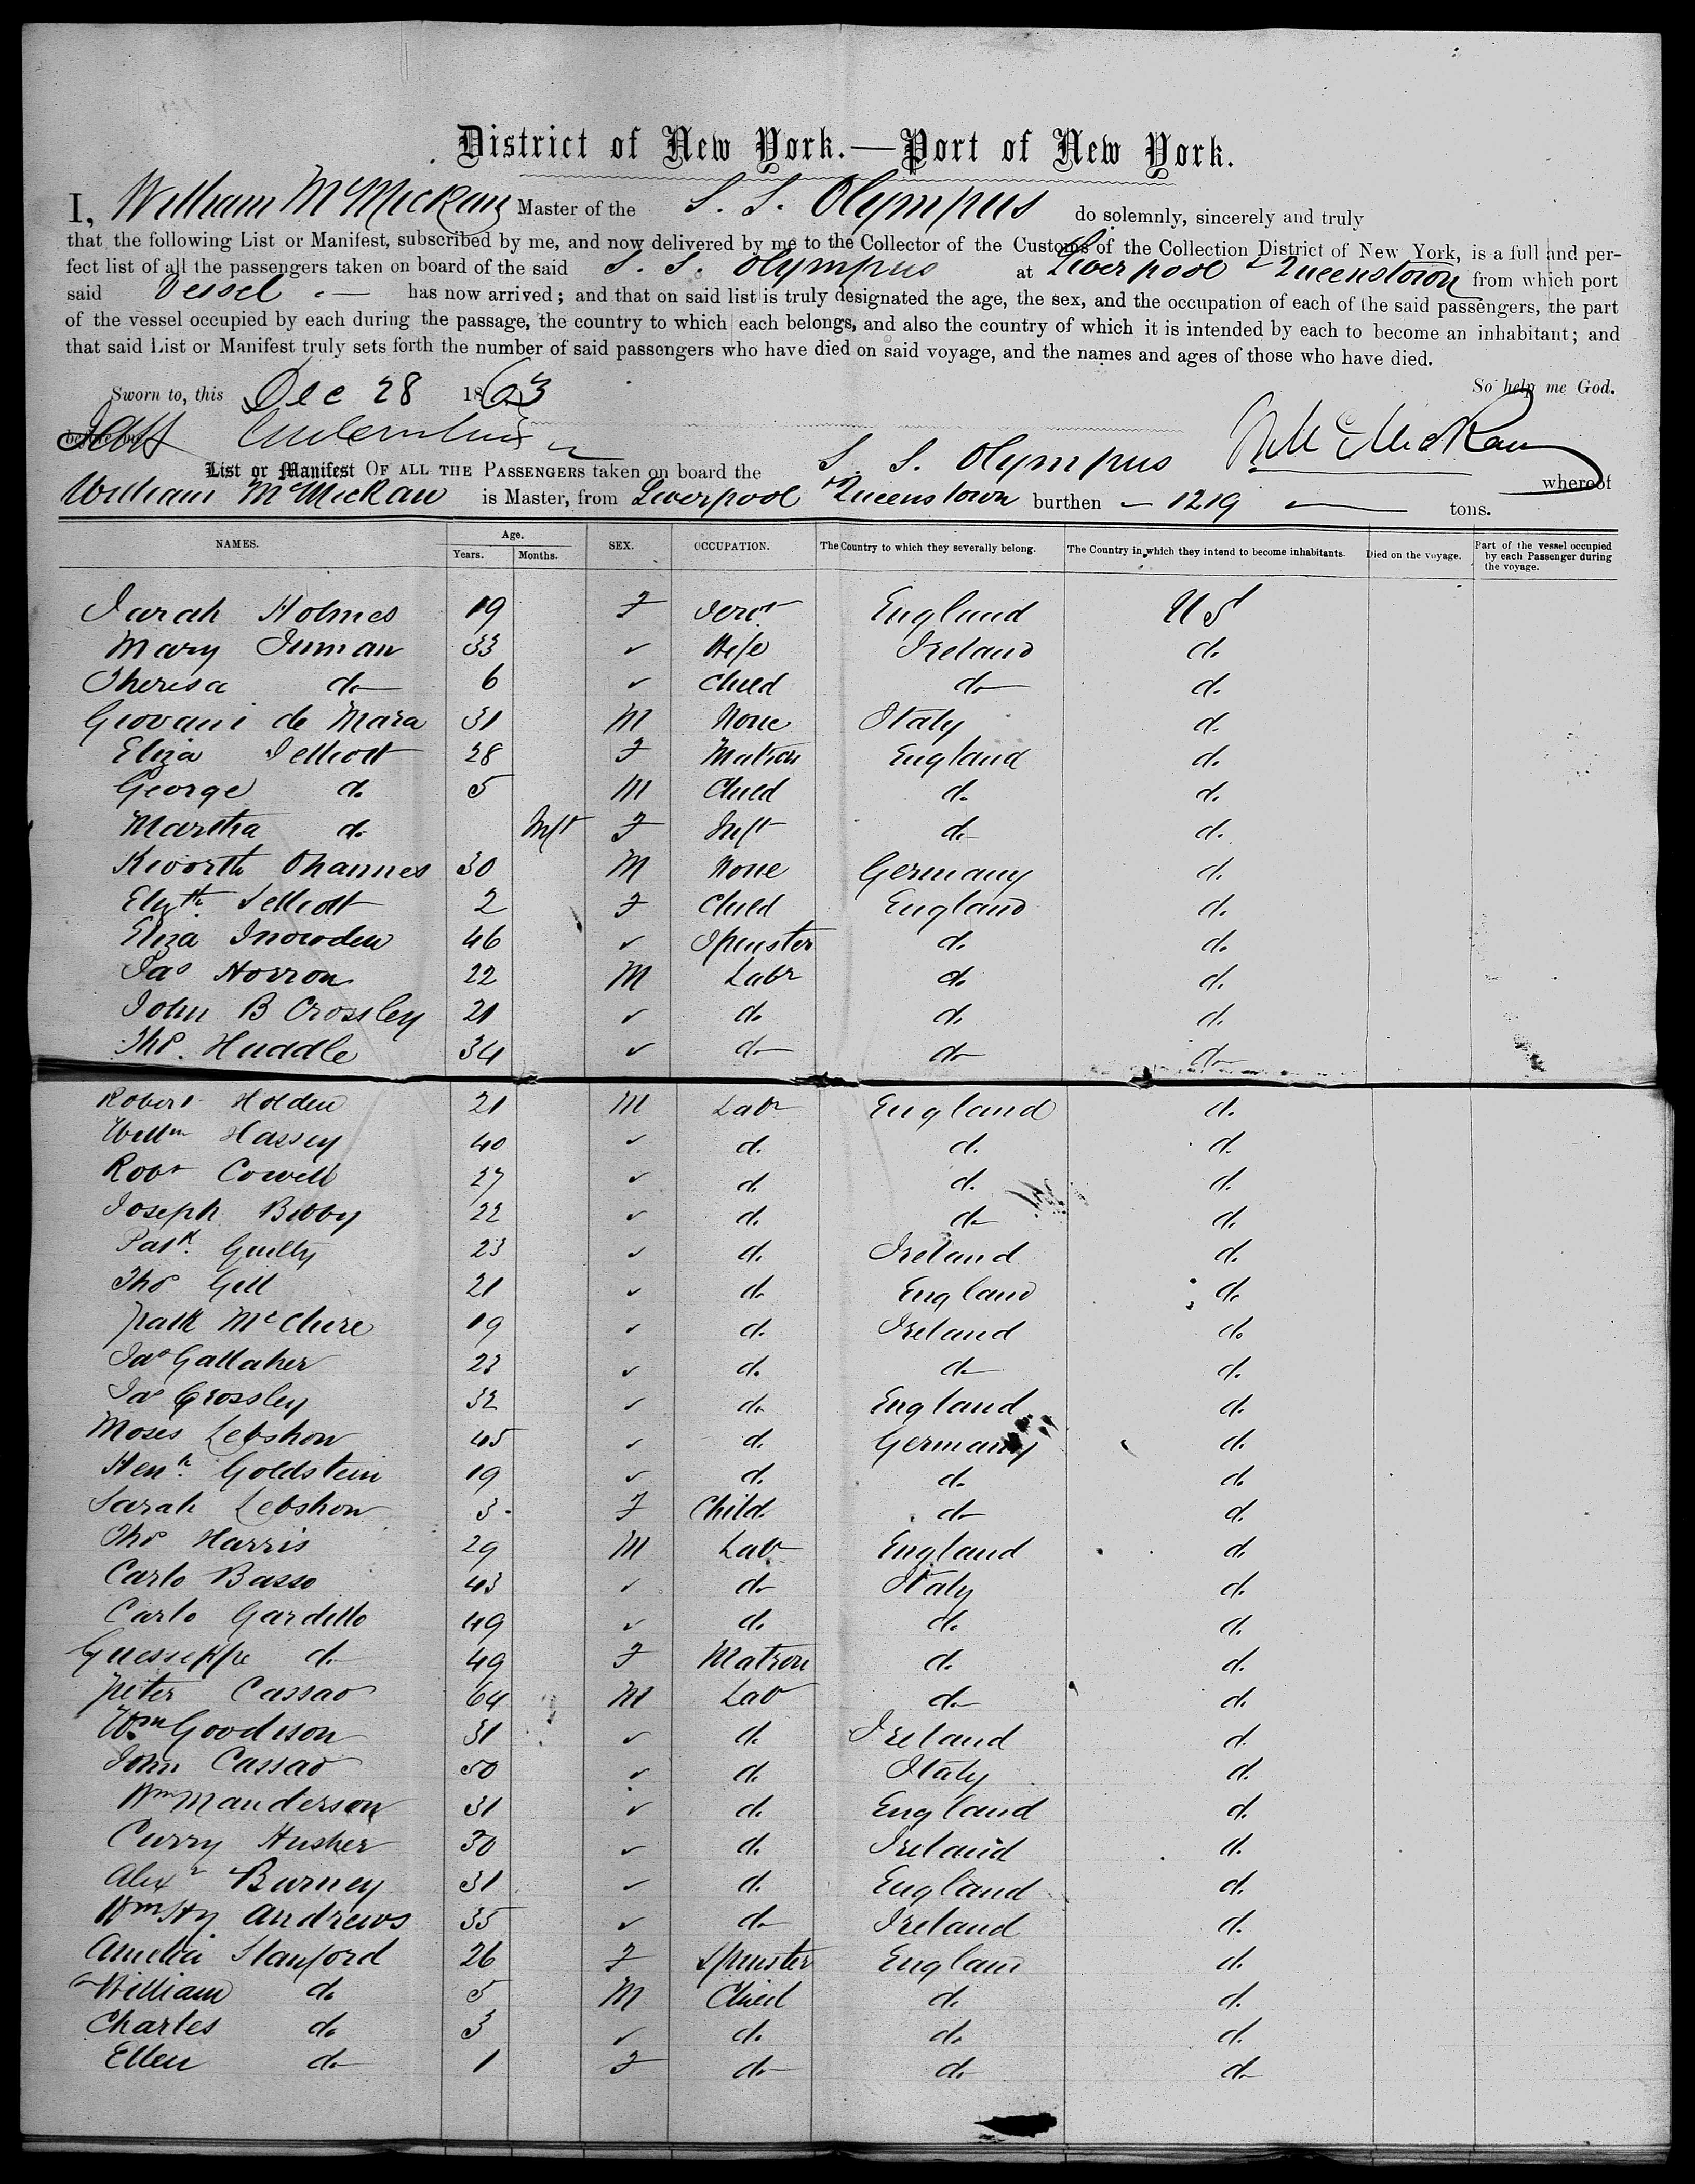 District of New York.—Port of New York.
I, William McMickan Master of the S. S. Olympus do solemnly, sincerely and truly
that the following List or Manifest, subscribed by me, and now delivered by me to the Collector of the Customs of the Collection District of New York, is a full and per-
fect list of all the passengers taken on board of the said S. S. Olympus at Liverpool & Queenstown from which port
said Vessel has now arrived; and that on said list is truly designated the age, the sex, and the occupation of each of the said passengers, the part
of the vessel occupied by each during the passage, the country to which each belongs, and also the country of which it is intended by each to become an inhabitant; and
that said List or Manifest truly sets forth the number of said passengers who have died on said voyage, and the names and ages of those who have died.
Sworn to, this Dec 28 1863 So help me God.
before me W McMickan
List or Manifest OF ALL THE PASSENGERS taken on board the S. S. Olympus whereof
William McMickan is Master, from Liverpool & Queenstown burthen — 1219 — tons.
NAMES. Age. Years. Months. SEX. OCCUPATION. The Country to which they severally belong. The Country in which they intend to become inhabitants. Died on the voyage. Part of the vessel occupied by each Passenger during the voyage.
Sarah Holmes 19 F Servt England U S
Mary Inman 33 ✓ Wife Ireland do
Theresa do 6 ✓ Child do do
Giovani de Mara 31 M None Italy do
Eliza 28 F Matron England do
George do 5 M Child do do
Martha do Inft F Inft do do
Khannes 30 M None Germany do
Elizth 2 F Child England do
Eliza Snowden 46 ✓ Spinster do do
Jas Horron 22 M Labr do do
John B Crossley 21 ✓ do do do
Thos. Huddle 34 ✓ do do do
Robert Holden 21 M Labr England do
Willm Hassey 40 ✓ do do do
Robt Cowell 27 ✓ do do do
Joseph Bibby 22 ✓ do do do
Patk. Guilty 23 ✓ do Ireland do
Thos Gill 21 ✓ do England do
Patk McClure 19 ✓ do Ireland do
Jas Gallaher 23 ✓ do do do
Jas Crossley 32 ✓ do England do
Moses Lebshon 45 ✓ do Germany do
Heny. Goldstein 19 ✓ do do do
Sarah Lebshon 3 F Child do do
Thos Harris 29 M Labr England do
Carlo Basso 43 ✓ do Italy do
Carlo Gardillo 49 ✓ do do do
Guesseppe do 49 F Matron do do
Peter Cassao 64 M Lab do do
Wm Goodison 31 ✓ do Ireland do
John Cassao 50 ✓ do Italy do
Wm Manderson 31 ✓ do England do
Curry Husher 30 ✓ do Ireland do
Alexr Burney 31 ✓ do England do
Wm Hy Andrews 35 ✓ do Ireland do
Amelia Stanford 26 F Spinster England do
William do 5 M Child do do
Charles do 3 ✓ do do do
Ellen do 1 F do do do